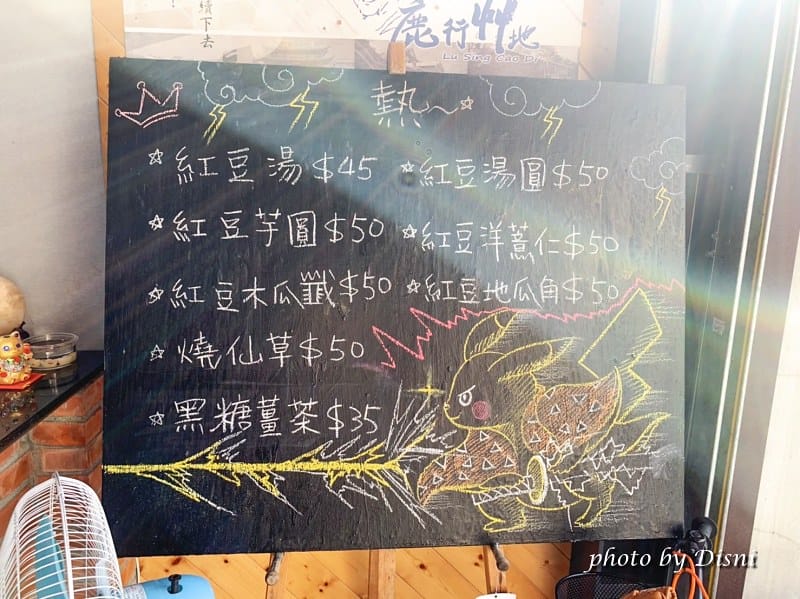 續下去
鹿行艸地
Lu Sing Cao Di
熱~☆
☆紅豆湯$45
☆紅豆湯圓$50
☆紅豆芋圓$50
☆紅豆洋薏仁$50
☆紅豆木瓜籤$50
☆紅豆地瓜角$50
☆燒仙草$50
☆黑糖薑茶$35
photo by Disni